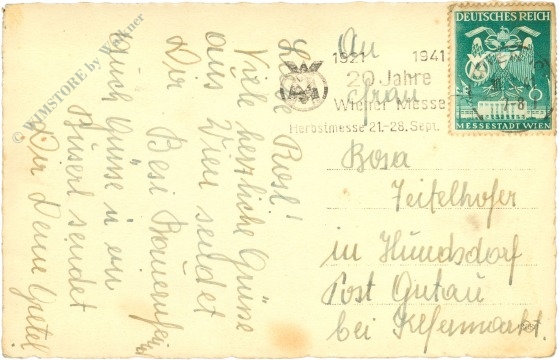 Liebe Rosl!
Viele herzliche Grüsse
aus Wien sendet
Dir Besi
Auch Grüsse u. ein
Busserl sendet
Dir Deine Gretel
© WIMSTORE by Winkner
1921 1941
20 Jahre
Wiener Messe
Herbstmesse 21.-28. Sept.
DEUTSCHES REICH
7-8
MESSESTADT WIEN
An
Frau
Rosa
Zeitelhofer
in Hundsdorf
Post Gutau
bei Kefermarkt.